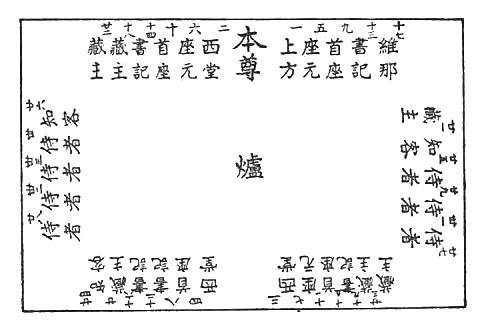 十七 維那
十三 書記
九 首座
五 座元
一 上方
本尊
二 西堂
六 座元
十 首座
十四 書記
十八 藏主
廿三 藏主
藏主
廿五 知客
侍者
侍者
廿七 侍者
爐
廿六 知客
侍者
侍者
侍者
廿八 侍者
三 西堂
七 座元
首座
書記
藏主
藏主
四 西堂
八 首座
十二 書記
書記
藏主
廿四 知客